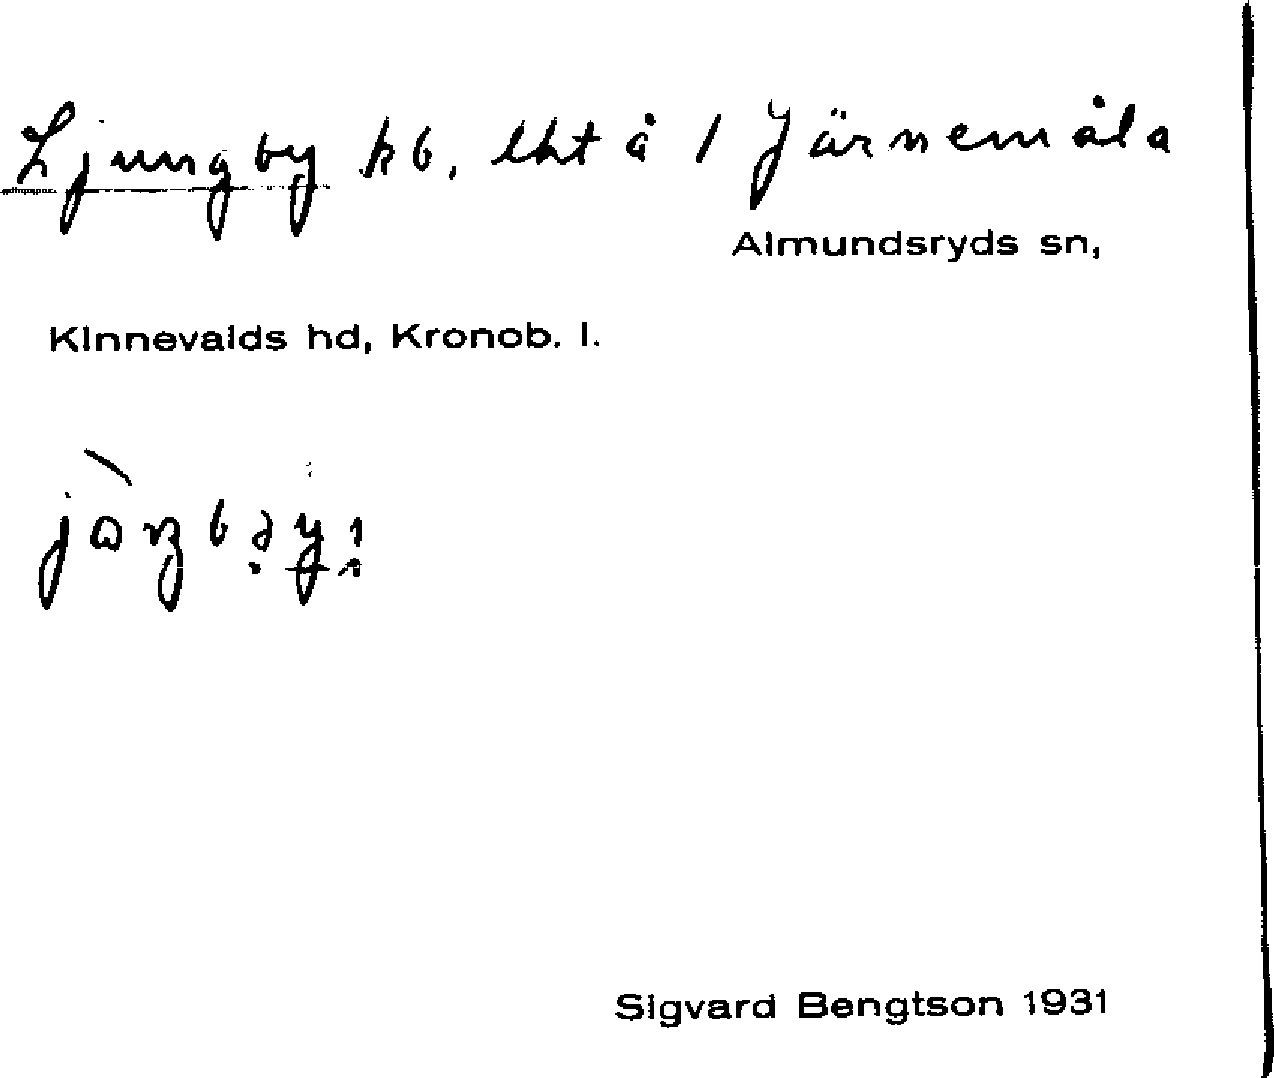 Ljungby kb, lht å 1 Järnemåla
Almundsryds sn,
Kinnevalds hd, Kronob. l.
Sigvard Bengtson 1931